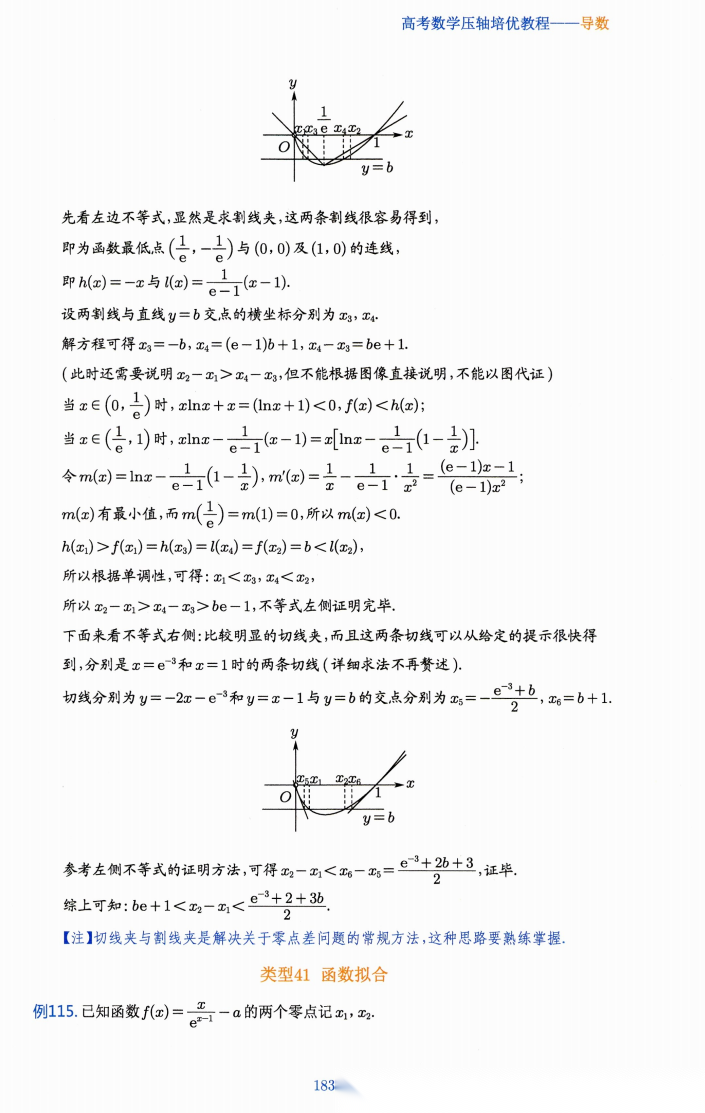 高考数学压轴培优教程——导数
y
1
x₁x₃ e x₄x₂ x
O 1
y=b
先看左边不等式,显然是求割线夹,这两条割线很容易得到,
即为函数最低点(1/e, -1/e)与(0,0)及(1,0)的连线,
即h(x)=-x与l(x)=1/(e-1)(x-1).
设两割线与直线y=b交点的横坐标分别为x₃,x₄.
解方程可得x₃=-b,x₄=(e-1)b+1,x₄-x₃=be+1.
(此时还需要说明x₂-x₁>x₄-x₃,但不能根据图像直接说明,不能以图代证)
当x∈(0,1/e)时,xlnx+x=(lnx+1)<0,f(x)<h(x);
当x∈(1/e,1)时,xlnx-1/(e-1)(x-1)=x[lnx-1/(e-1)(1-1/x)].
令m(x)=lnx-1/(e-1)(1-1/x),m'(x)=1/x-1/(e-1)·1/x²=((e-1)x-1)/((e-1)x²);
m(x)有最小值,而m(1/e)=m(1)=0,所以m(x)<0.
h(x₁)>f(x₁)=h(x₃)=l(x₄)=f(x₂)=b<l(x₂),
所以根据单调性,可得:x₁<x₃,x₄<x₂,
所以x₂-x₁>x₄-x₃>be-1,不等式左侧证明完毕.
下面来看不等式右侧:比较明显的切线夹,而且这两条切线可以从给定的提示很快得
到,分别是x=e⁻³和x=1时的两条切线(详细求法不再赘述).
切线分别为y=-2x-e⁻³和y=x-1与y=b的交点分别为x₅=-(e⁻³+b)/2,x₆=b+1.
y
x₅x₁ x₂x₆ x
O 1
y=b
参考左侧不等式的证明方法,可得x₂-x₁<x₆-x₅=(e⁻³+2b+3)/2,证毕.
综上可知:be+1<x₂-x₁<(e⁻³+2+3b)/2.
【注】切线夹与割线夹是解决关于零点差问题的常规方法,这种思路要熟练掌握.
类型41 函数拟合
例115.已知函数f(x)=x/eˣ⁻¹-a的两个零点记x₁,x₂.
183